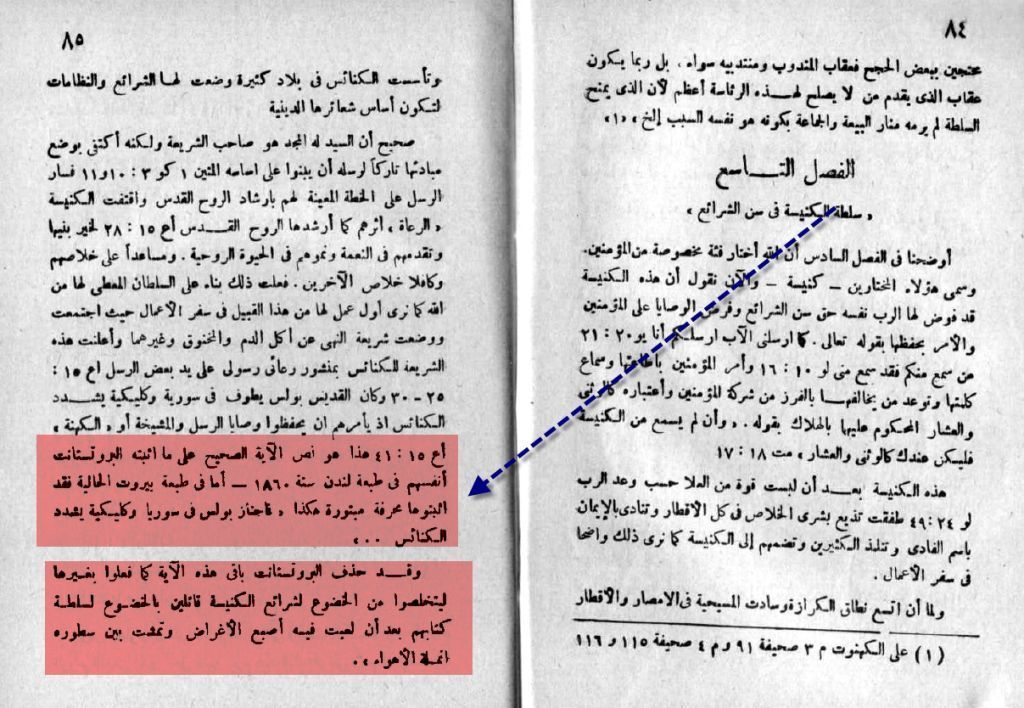 ٨٤
محتجين ببعض الحجج فعقاب المندوب ومنتدبيه سواء، بل ربما يكون
عقاب الذى يقدم من لا يصلح لهـذه الرئاسة أعظم لأن الذى يمنح
السلطة لم يرمه منار البيعة والجماعة بكونه هو نفسه السبب إلخ » «١»
الفصل التـــاسع
« سلطة الكنيسة فى سن الشرائع »
أوضحنا فى الفصل السادس أن الله أختار فئة مخصوصة من المؤمنين.
وسمى هؤلاء المختارين ــ كنيسة ــ والآن نقول أن هذه الكنيسة
قد فوض لها الرب نفسه حق سن الشرائع وفرض الوصايا على المؤمنين
والأمر بحفظها بقوله تعالى. كما ارسلنى الآب ارسلكم أنا يو ٢٠ : ٢١
من سمع منكم فقد سمع منى لو ١٠ : ١٦ وأمر المؤمنين بأطاعتها وسماع
كلمتها وتوعد من يخالفهـا بالفرز من شركة المؤمنين وأعتباره كالوثنى
والعشار المحكوم عليها بالهلاك بقوله . « وأن لم يسمع من الكنيسة
فليسكن عندك كالوثنى والعشار » مت ١٨ : ١٧
هذه الكنيسة بعــد أن لبست قوة من العلا حسب وعد الرب
لو ٢٤ : ٤٩ طفقت تذيع بشرى الخلاص فى كل الأقطار وتنادى بالإيمان
باسم الفادى وتتلمذ الكثيرين وتضمهم إلى الكنيسة كما نرى ذلك واضحا
فى سفر الأعمال .
ولما أن اتسع نطاق الكرازة وسادت المسيحية فى الامصار والأقطار
(١) على الكهنوت م ٣ صحيفة ٩١ و م ٤ صحيفة ١١٥ و ١١٦
٨٥
وتأسست الكنائس فى بلاد كثيرة وضعت لهـا الشرائع والنظامات
لتكون أساس شعائرها الدينية
صحيح أن السيد له المجد هو صاحب الشريعة ولكنه أكتفى بوضع
مبادئها تاركاً لرسله أن يبنوا على اساسه المتين ١ كو ٣ : ١٠ و ١١ فسار
الرسل على الخطة المعينة لهم بارشاد الروح القدس واقتفت الكنيسة
« الرعاة » أثرهم كما أرشدها الروح القـدس أع ١٥ : ٢٨ لخير بنيها
وتقدمهم فى النعمة ونموهم فى الحيوة الروحية . ومساعداً على خلاصهم
وكافلا خلاص الآخرين . فعلت ذلك بناء على السلطان المعطى لها من
الله كما نرى أول عمل لها من هذا القبيل فى سفر الأعمال حيث اجتمعت
ووضعت شريعة النهى عن أكل الدم والمخنوق وغيرهما وأعلنت هذه
الشريعة للكنائس بمنشور رعائى رسولى على يد بعض الرسل اع ١٥ :
٢٥ ــ ٣٠ وكان القديس بولس يطوف فى سورية وكليكية يشـدد
الكنائس اذ يأمرهم ان يحفظوا وصايا الرسل والمشيخة أو « الكهنة »
أع ١٥ : ٤١ هذا هو نص الآية الصحيح على ما اثبته البروتستانت
أنفسهم فى طبعة لندن سنة ١٨٦٠ ــ أما فى طبعة بيروت الحالية فقد
اثبتوها محرفة مبتورة هكذا « فاجتاز بولس فى سوريا وكليكية يشدد
الكنائس ٠٠ »
وقــد حذف البروتستانت باقى هذه الآية كما فعلوا بغيرها
ليتخلصوا من الخضوع لشرائع الكنيسة قائلين بالخضوع لسلطة
كتابهم بعد أن لعبت فيسه أصبع الأغراض وتمشت بين سطوره
انمـلة الأهواء » .